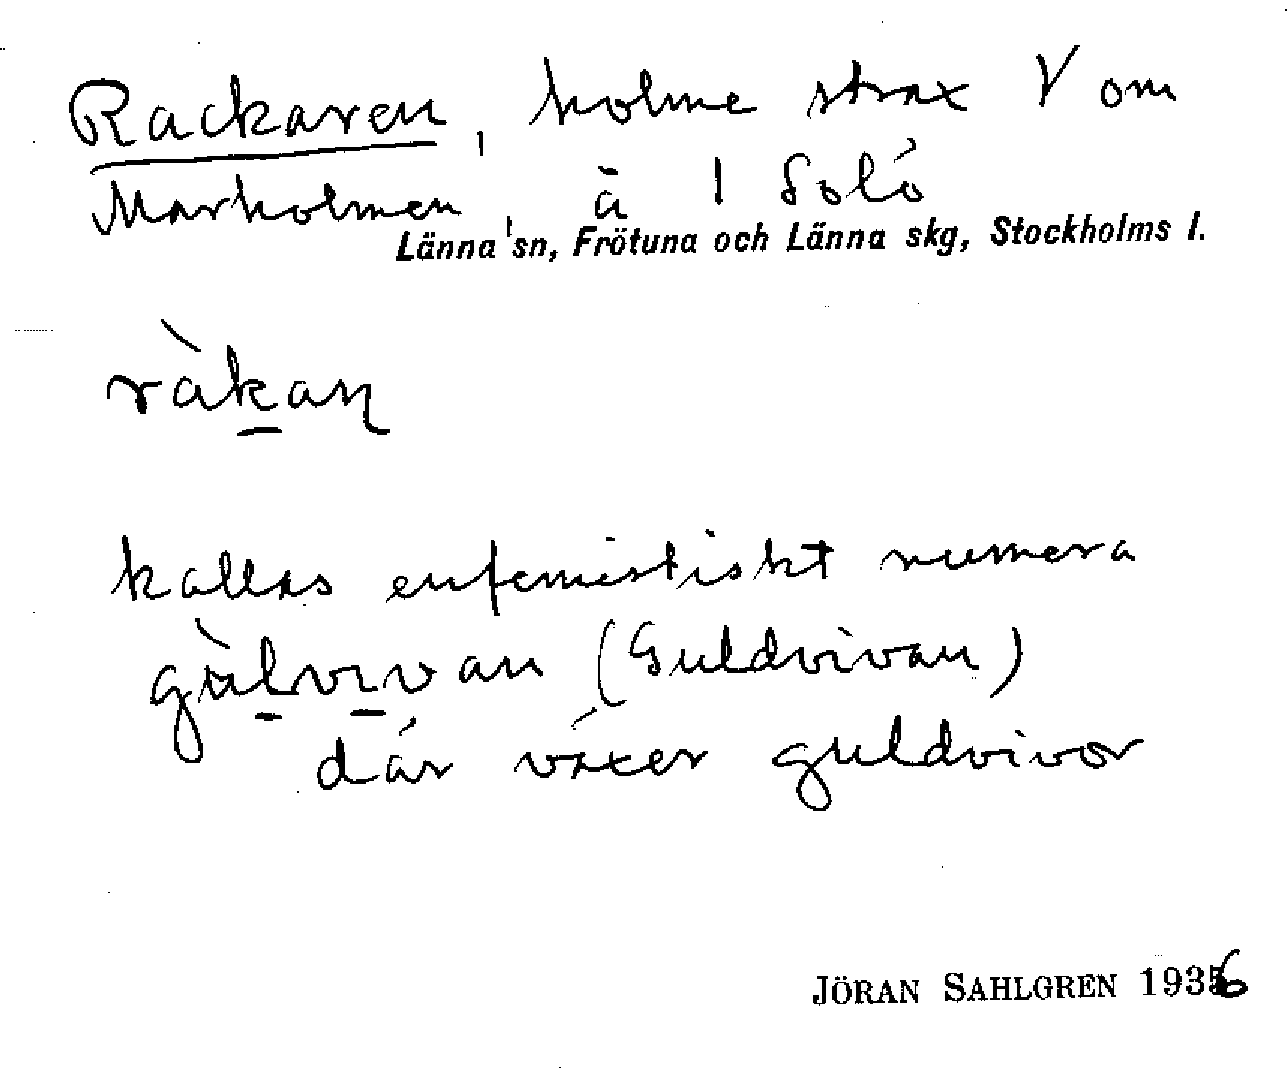 Rackaren, holme strax V om
Marholmen, ä 1 Solö
Länna sn, Frötuna och Länna skg, Stockholms l.
ràkaɳ
kallas eufemistiskt numera
gùlvɪvan (Guldvivan)
där växer guldvivor
JÖRAN SAHLGREN 1936